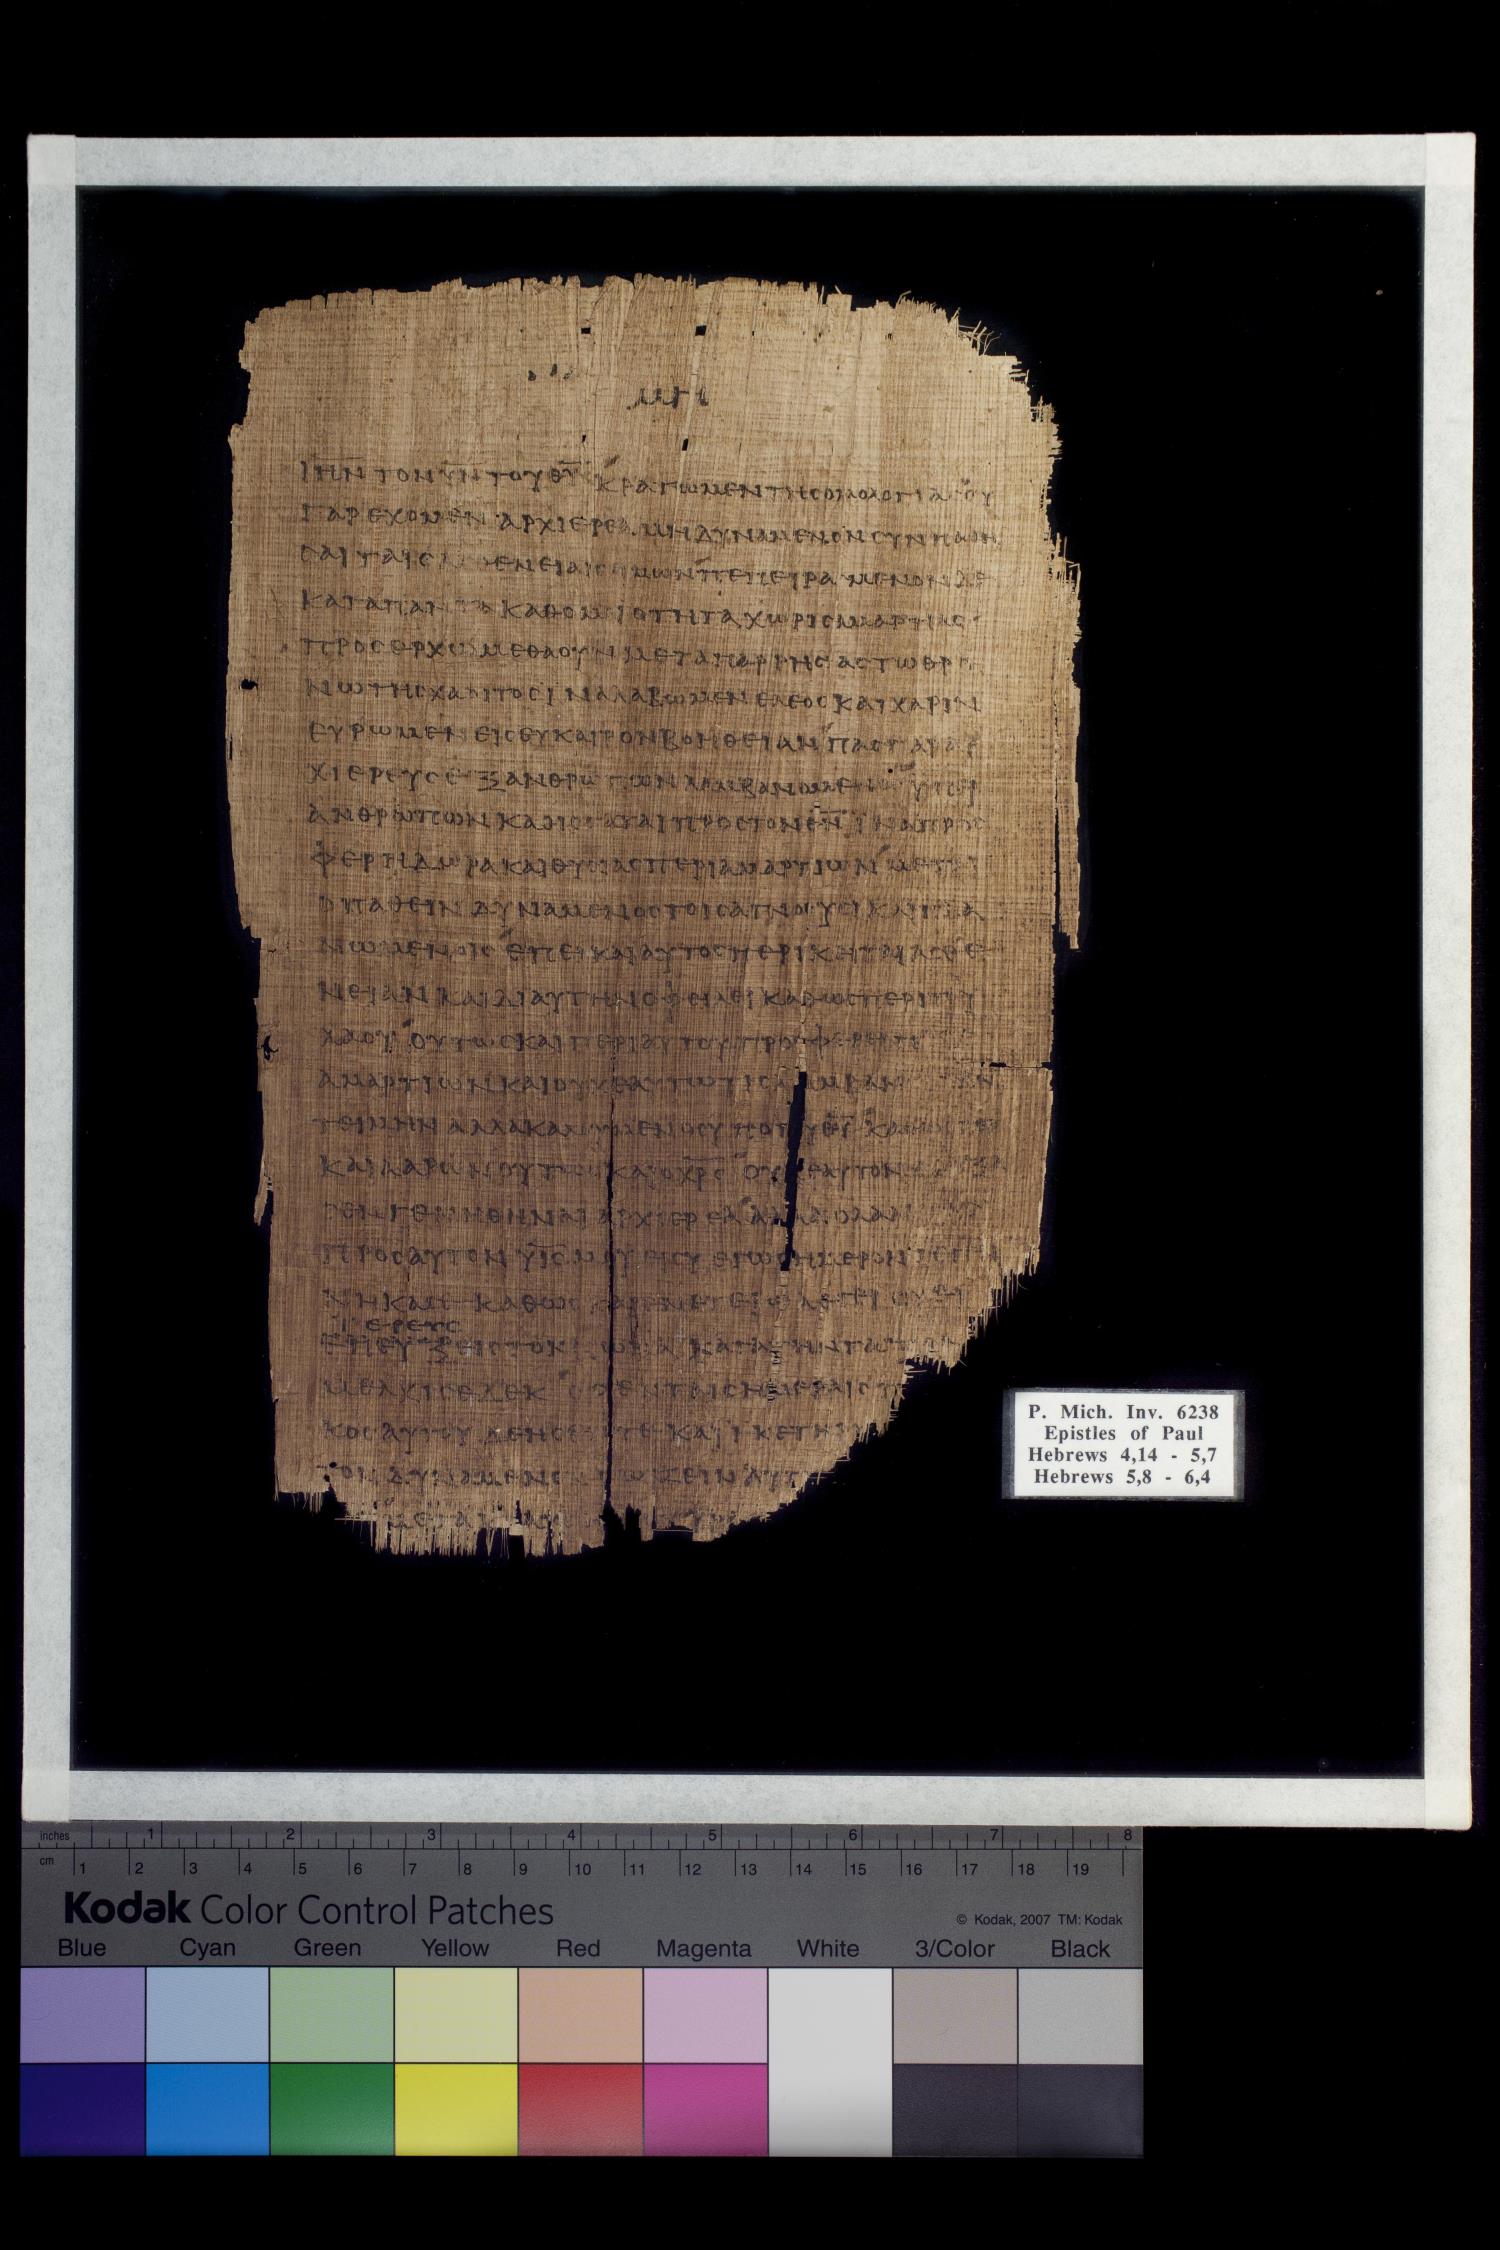 ΙΗΝ ΤΟΝ ΥΝ ΤΟΥ ΘΥ ΚΡΑΤΩΜΕΝ ΤΗΣ ΟΜΟΛΟΓΙΑΣ ΟΥ
ΓΑΡ ΕΧΟΜΕΝ ΑΡΧΙΕΡΕΑ ΜΗ ΔΥΝΑΜΕΝΟΝ
ΣΑΙ ΤΑΙΣ ΗΜΩΝ ΠΕΠΕΙΡΑΜΕΝΟΝ ΔΕ
ΚΑΤΑ ΠΑΝΤΑ ΚΑΘ ΟΜΙΟΤΗΤΑ ΧΩΡΙΣ ΑΜΑΡΤΙΑΣ
ΠΡΟΣΕΡΧΩΜΕΘΑ ΟΥΝ ΜΕΤΑ ΠΑΡΡΗΣΑΣ ΤΩ ΘΡΟ
ΝΩ ΤΗΣ ΧΑΡΙΤΟΣ ΙΝΑ ΛΑΒΩΜΕΝ ΕΛΕΟΣ ΚΑΙ ΧΑΡΙΝ
ΕΥΡΩΜΕΝ ΕΙΣ ΕΥΚΑΙΡΟΝ ΒΟΗΘΕΙΑΝ ΠΑΣ ΓΑΡ ΑΡ
ΧΙΕΡΕΥΣ ΕΞ ΑΝΘΡΩΠΩΝ ΛΑΜΒΑΝΟΜΕΝΟΣ ΥΠΕΡ
ΑΝΘΡΩΠΩΝ ΚΑΘΙΣΤΑΤΑΙ ΠΡΟΣ ΤΟΝ ΘΝ ΙΝΑ ΠΡΟΣ
ΦΕΡΗ ΔΩΡΑ ΚΑΙ ΘΥΣΙΑΣ ΠΕΡΙ ΑΜΑΡΤΙΩΝ ΜΕΤΡΙ
ΟΠΑΘΕΙΝ ΔΥΝΑΜΕΝΟΣ ΤΟΙΣ ΑΓΝΟΟΥΣΙ ΚΑΙ ΠΛΑ
ΝΩΜΕΝΟΙΣ ΕΠΕΙ ΚΑΙ ΑΥΤΟΣ ΠΕΡΙΚΕΙΤΑΙ ΑΣΘΕ
ΝΕΙΑΝ ΚΑΙ ΔΙ ΑΥΤΗΝ ΟΦΕΙΛΕΙ ΚΑΘΩΣ ΠΕΡΙ ΤΟΥ
ΛΑΟΥ ΟΥΤΩΣ ΚΑΙ ΠΕΡΙ ΑΥΤΟΥ ΠΡΟΣΦΕΡΕΙΝ
ΑΜΑΡΤΙΩΝ ΚΑΙ ΟΥΧ ΕΑΥΤΩ ΤΙΣ ΛΑΜΒΑΝΕΙ ΤΗΝ
ΤΕΙΜΗΝ ΑΛΛΑ ΚΑΛΟΥΜΕΝΟΣ ΥΠΟ ΤΟΥ ΘΥ
ΚΑΙ ΑΑΡΩΝ ΟΥΤΩΣ ΚΑΙ Ο ΧΡΣ ΟΥΧ ΕΑΥΤΟΝ ΕΔΟΞΑ
ΣΕΝ ΓΕΝΗΘΗΝΑΙ ΑΡΧΙΕΡΕΑ ΑΛΛΑ Ο ΛΑΛΗ
ΠΡΟΣ ΑΥΤΟΝ ΥΙΣ ΜΟΥ ΕΙ ΣΥ ΕΓΩ ΣΗΜΕΡΟΝ ΓΕΓΕΝ
ΝΗΚΑ ΣΕ ΚΑΘΩΣ ΚΑΙ ΕΝ ΕΤΕΡΩ ΛΕΓΕΙ ΣΥ ΕΙ
ΙΕΡΕΥΣ
ΕΠΕΥΞ ΕΙΣ ΤΟΝ ΑΙΩΝΑ ΚΑΤΑ ΤΗΝ ΤΑΞΙΝ
ΜΕΛΧΙΣΕΔΕΚ ΟΣ ΕΝ ΤΑΙΣ ΗΜΕΡΑΙΣ Τ
ΚΟΣ ΑΥΤΟΥ ΔΕΗΣΕΙΣ ΤΕ ΚΑΙ ΙΚΕΤΗ
ΤΟΝ ΔΥΝΑΜΕΝΟΝ ΣΩΖΕΙΝ ΑΥΤ
P. Mich. Inv. 6238
Epistles of Paul
Hebrews 4,14 - 5,7
Hebrews 5,8 - 6,4
inches 1 2 3 4 5 6 7 8
cm 1 2 3 4 5 6 7 8 9 10 11 12 13 14 15 16 17 18 19
Kodak Color Control Patches
© Kodak, 2007 TM: Kodak
Blue Cyan Green Yellow Red Magenta White 3/Color Black